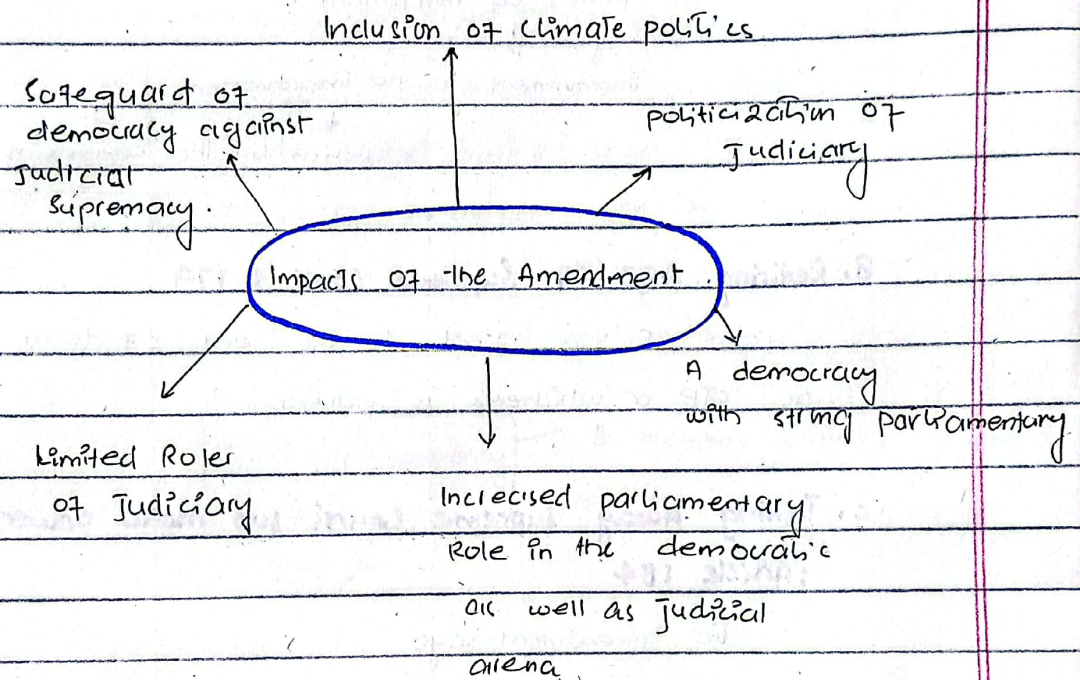 Inclusion of Climate politics
Safeguard of
democracy against
Judicial
Supremacy.
politicization of
Judiciary
Impacts of the Amendment.
A democracy
with strong parliamentary
Limited Roler
of Judiciary
Increased parliamentary
Role in the democratic
as well as judicial
arena